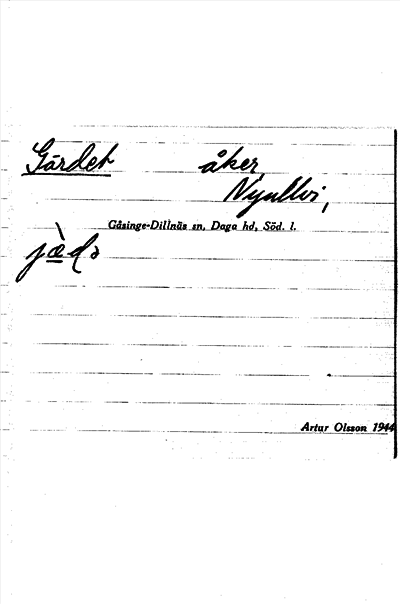 Gärdet åker,
Nyullvi,
Gåsinge-Dillnäs sn, Daga hd, Söd. l.
Artur Olsson 1944